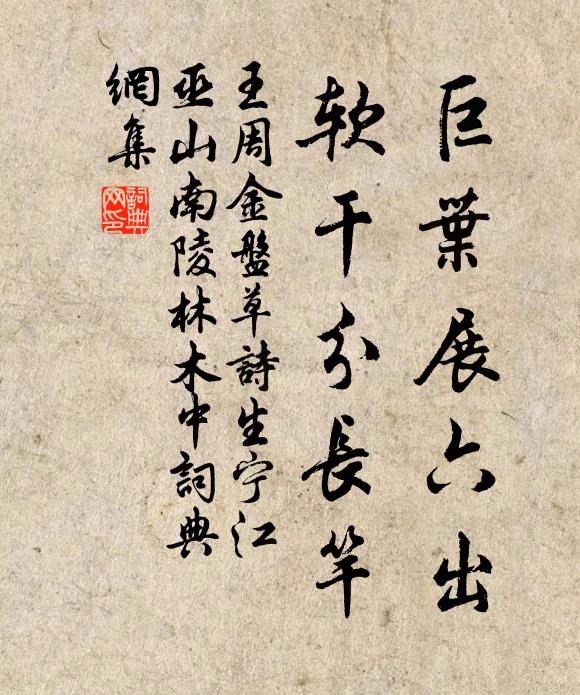 巨葉展六出
软干分長竿
王周金盤草詩生宁江
巫山南陵林木中詞典
網集
詞典网印